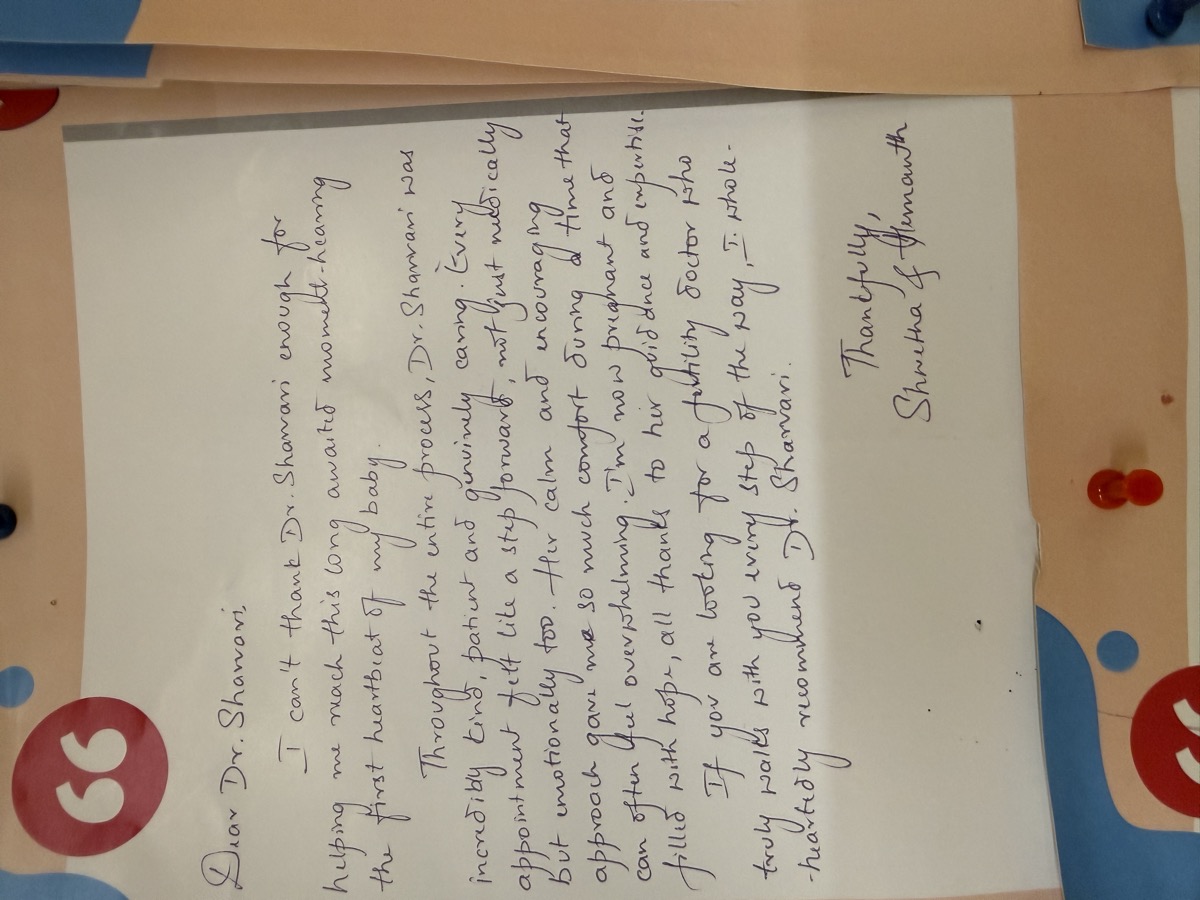 Dear Dr. Sharvari,
I can't thank Dr. Sharvari enough for
helping me reach this long awaited moment-hearing
the first heartbeat of my baby.
Throughout the entire process, Dr. Sharvari was
incredibly kind, patient and genuinely caring. Every
appointment felt like a step forward, not just medically
but emotionally too. Her calm and encouraging
approach gave me so much comfort during a time that
can often feel overwhelming. I'm now pregnant and
filled with hope, all thanks to her guidance and expertise.
If you are looking for a fertility doctor who
truly walks with you every step of the way, I whole-
-heartedly recommend Dr. Sharvari.
Thankfully,
Shwetha & Hemanth